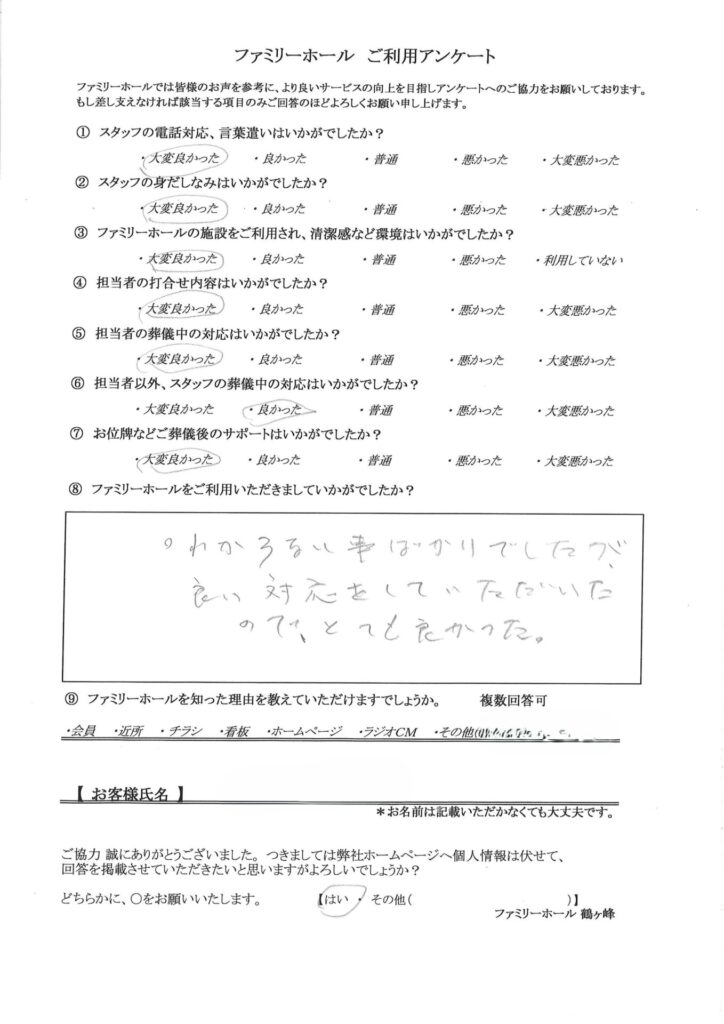 ファミリーホール ご利用アンケート
ファミリーホールでは皆様のお声を参考に、より良いサービスの向上を目指しアンケートへのご協力をお願いしております。
もし差し支えなければ該当する項目のみご回答のほどよろしくお願い申し上げます。
① スタッフの電話対応、言葉遣いはいかがでしたか？
・大変良かった ・良かった ・普通 ・悪かった ・大変悪かった
② スタッフの身だしなみはいかがでしたか？
・大変良かった ・良かった ・普通 ・悪かった ・大変悪かった
③ ファミリーホールの施設をご利用され、清潔感など環境はいかがでしたか？
・大変良かった ・良かった ・普通 ・悪かった ・利用していない
④ 担当者の打合せ内容はいかがでしたか？
・大変良かった ・良かった ・普通 ・悪かった ・大変悪かった
⑤ 担当者の葬儀中の対応はいかがでしたか？
・大変良かった ・良かった ・普通 ・悪かった ・大変悪かった
⑥ 担当者以外、スタッフの葬儀中の対応はいかがでしたか？
・大変良かった ・良かった ・普通 ・悪かった ・大変悪かった
⑦ お位牌などご葬儀後のサポートはいかがでしたか？
・大変良かった ・良かった ・普通 ・悪かった ・大変悪かった
⑧ ファミリーホールをご利用いただきましていかがでしたか？
○わからない事ばかりでしたが、
良い対応をしていただいた
ので、とても良かった。
⑨ ファミリーホールを知った理由を教えていただけますでしょうか。 複数回答可
・会員 ・近所 ・チラシ ・看板 ・ホームページ ・ラジオCM ・その他(
【 お客様氏名 】
＊お名前は記載いただかなくても大丈夫です。
ご協力 誠にありがとうございました。つきましては弊社ホームページへ個人情報は伏せて、
回答を掲載させていただきたいと思いますがよろしいでしょうか？
どちらかに、○をお願いいたします。 【はい ・ その他( )】
ファミリーホール 鶴ヶ峰